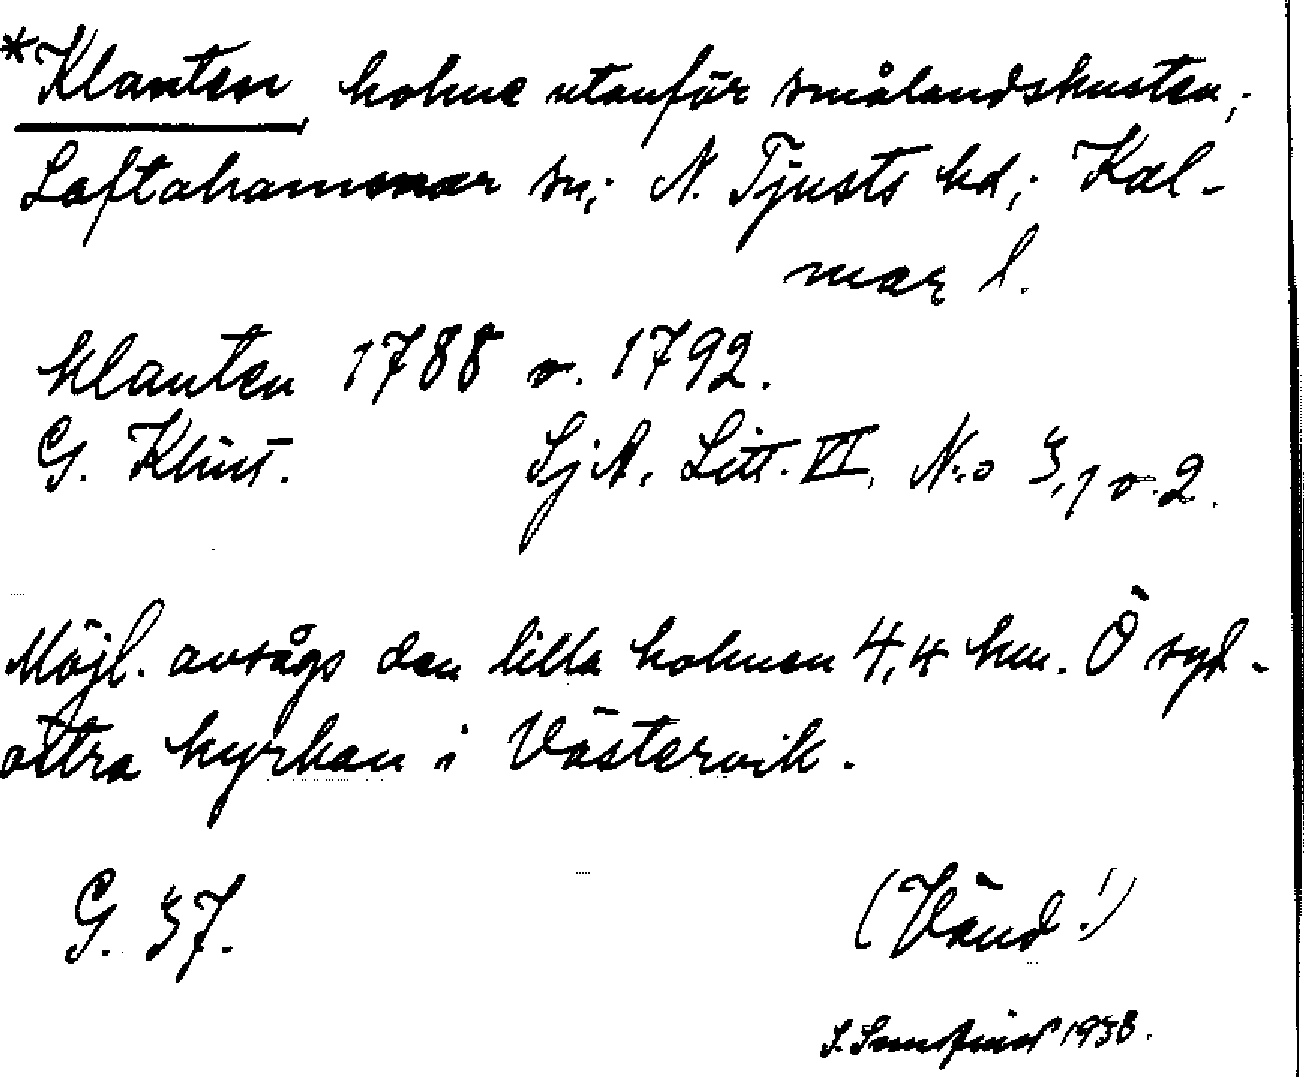 *Klanten, holme utanför smålandskusten;
Loftahammar sn; N. Tjusts hd; Kal-
mar l.
Klanten 1788 o. 1792.
G. Klint. SjA, Litt. VI, N:o 3,1 o. 2.
Möjl. avsågs den lilla holmen 4,4 km. Ö syd-
östra kyrkan i Västervik.
G. 37.
(Vänd!)
S. 1938.